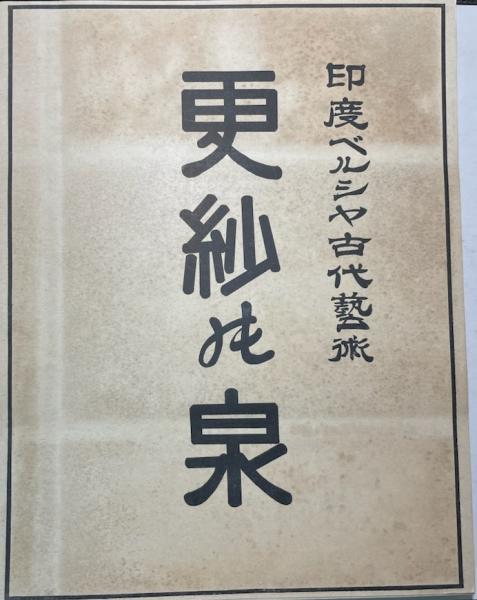 印度ペルシヤ古代藝術
更紗の泉